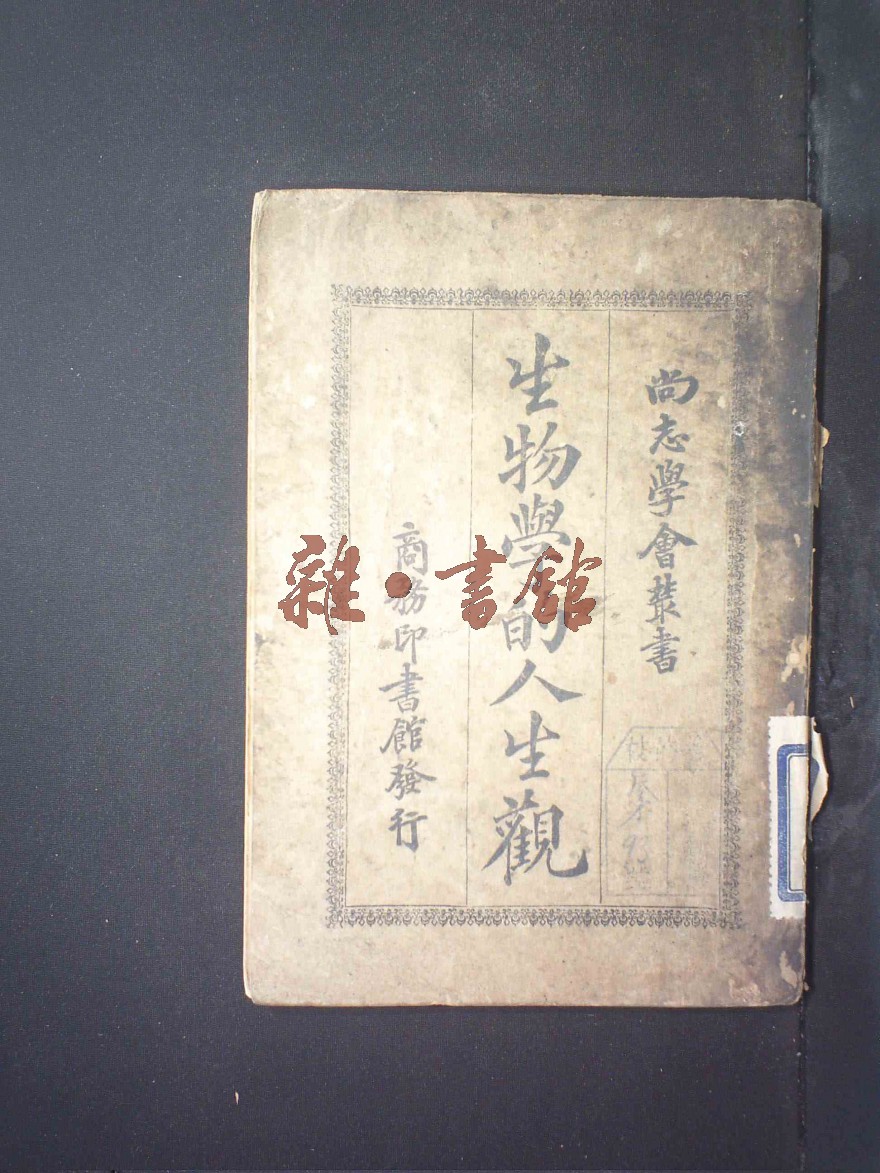 尚志學會叢書
生物學的人生觀
商務印書館發行
雜·書館